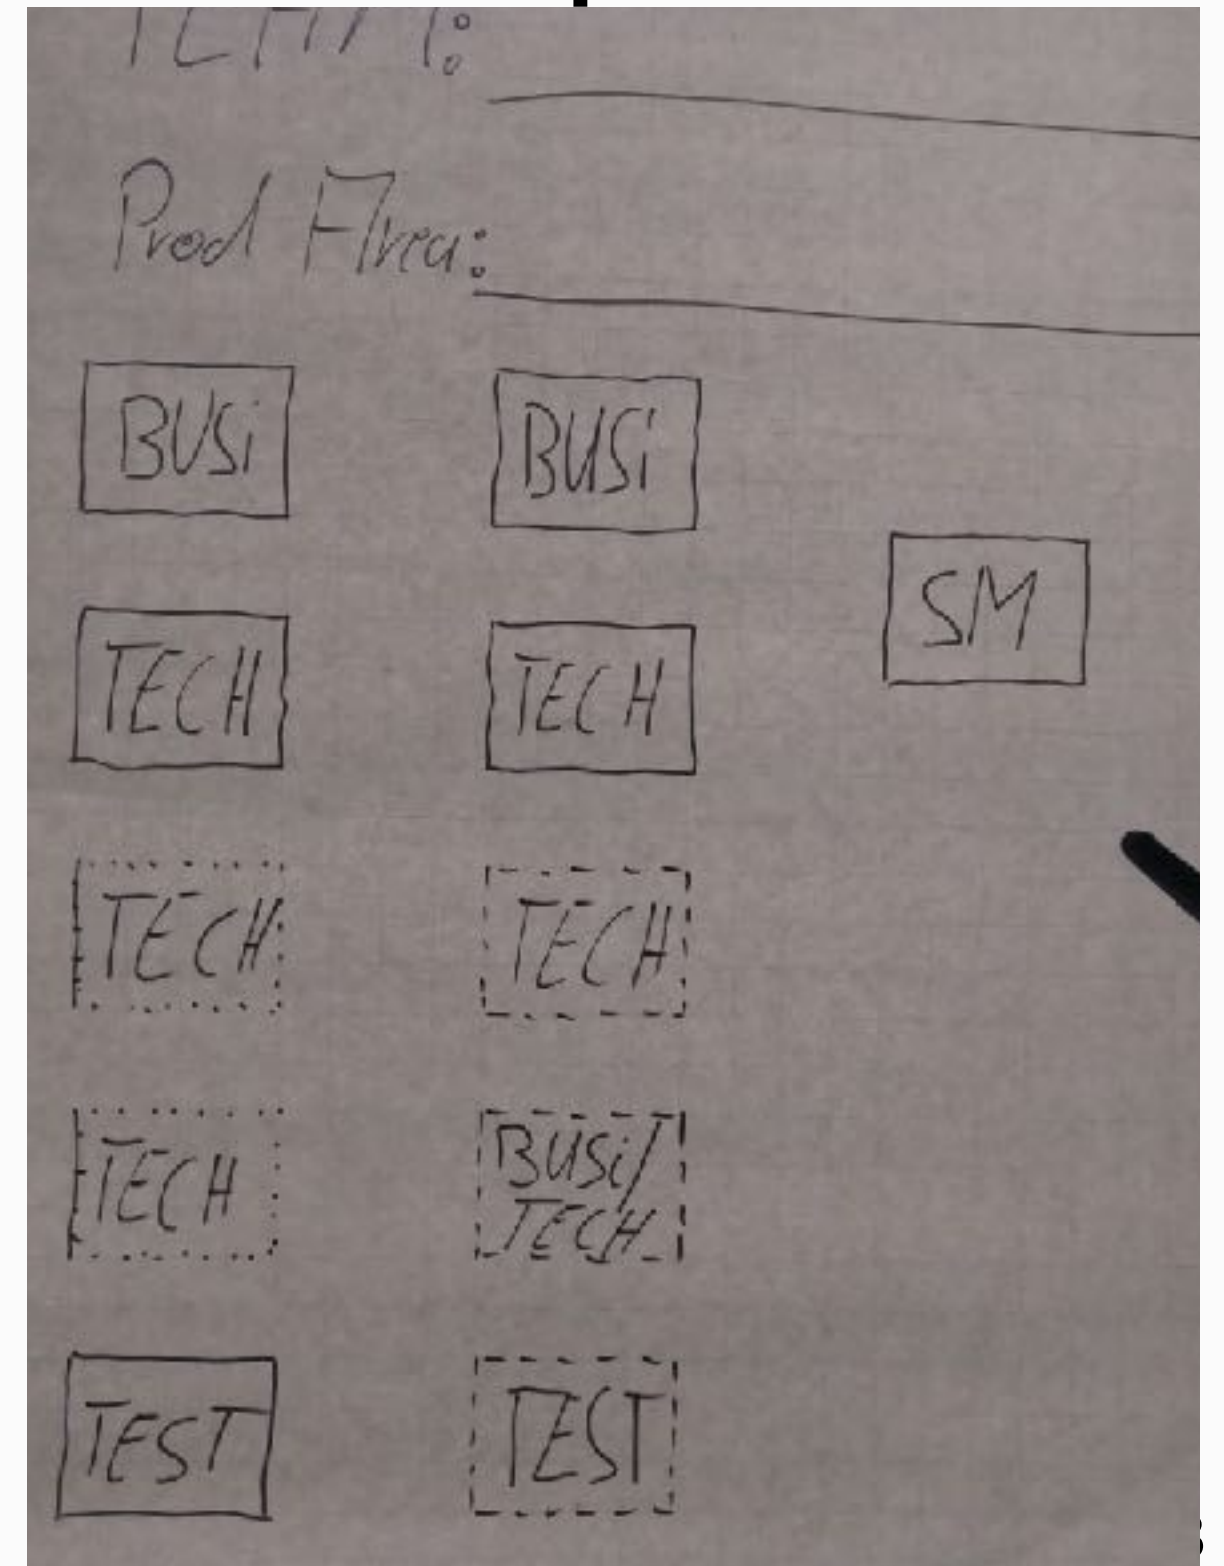 TEAM:
Prod Area:
BUSi BUSi
SM
TECH TECH
TECH TECH
TECH BUSi/
TECH
TEST TEST